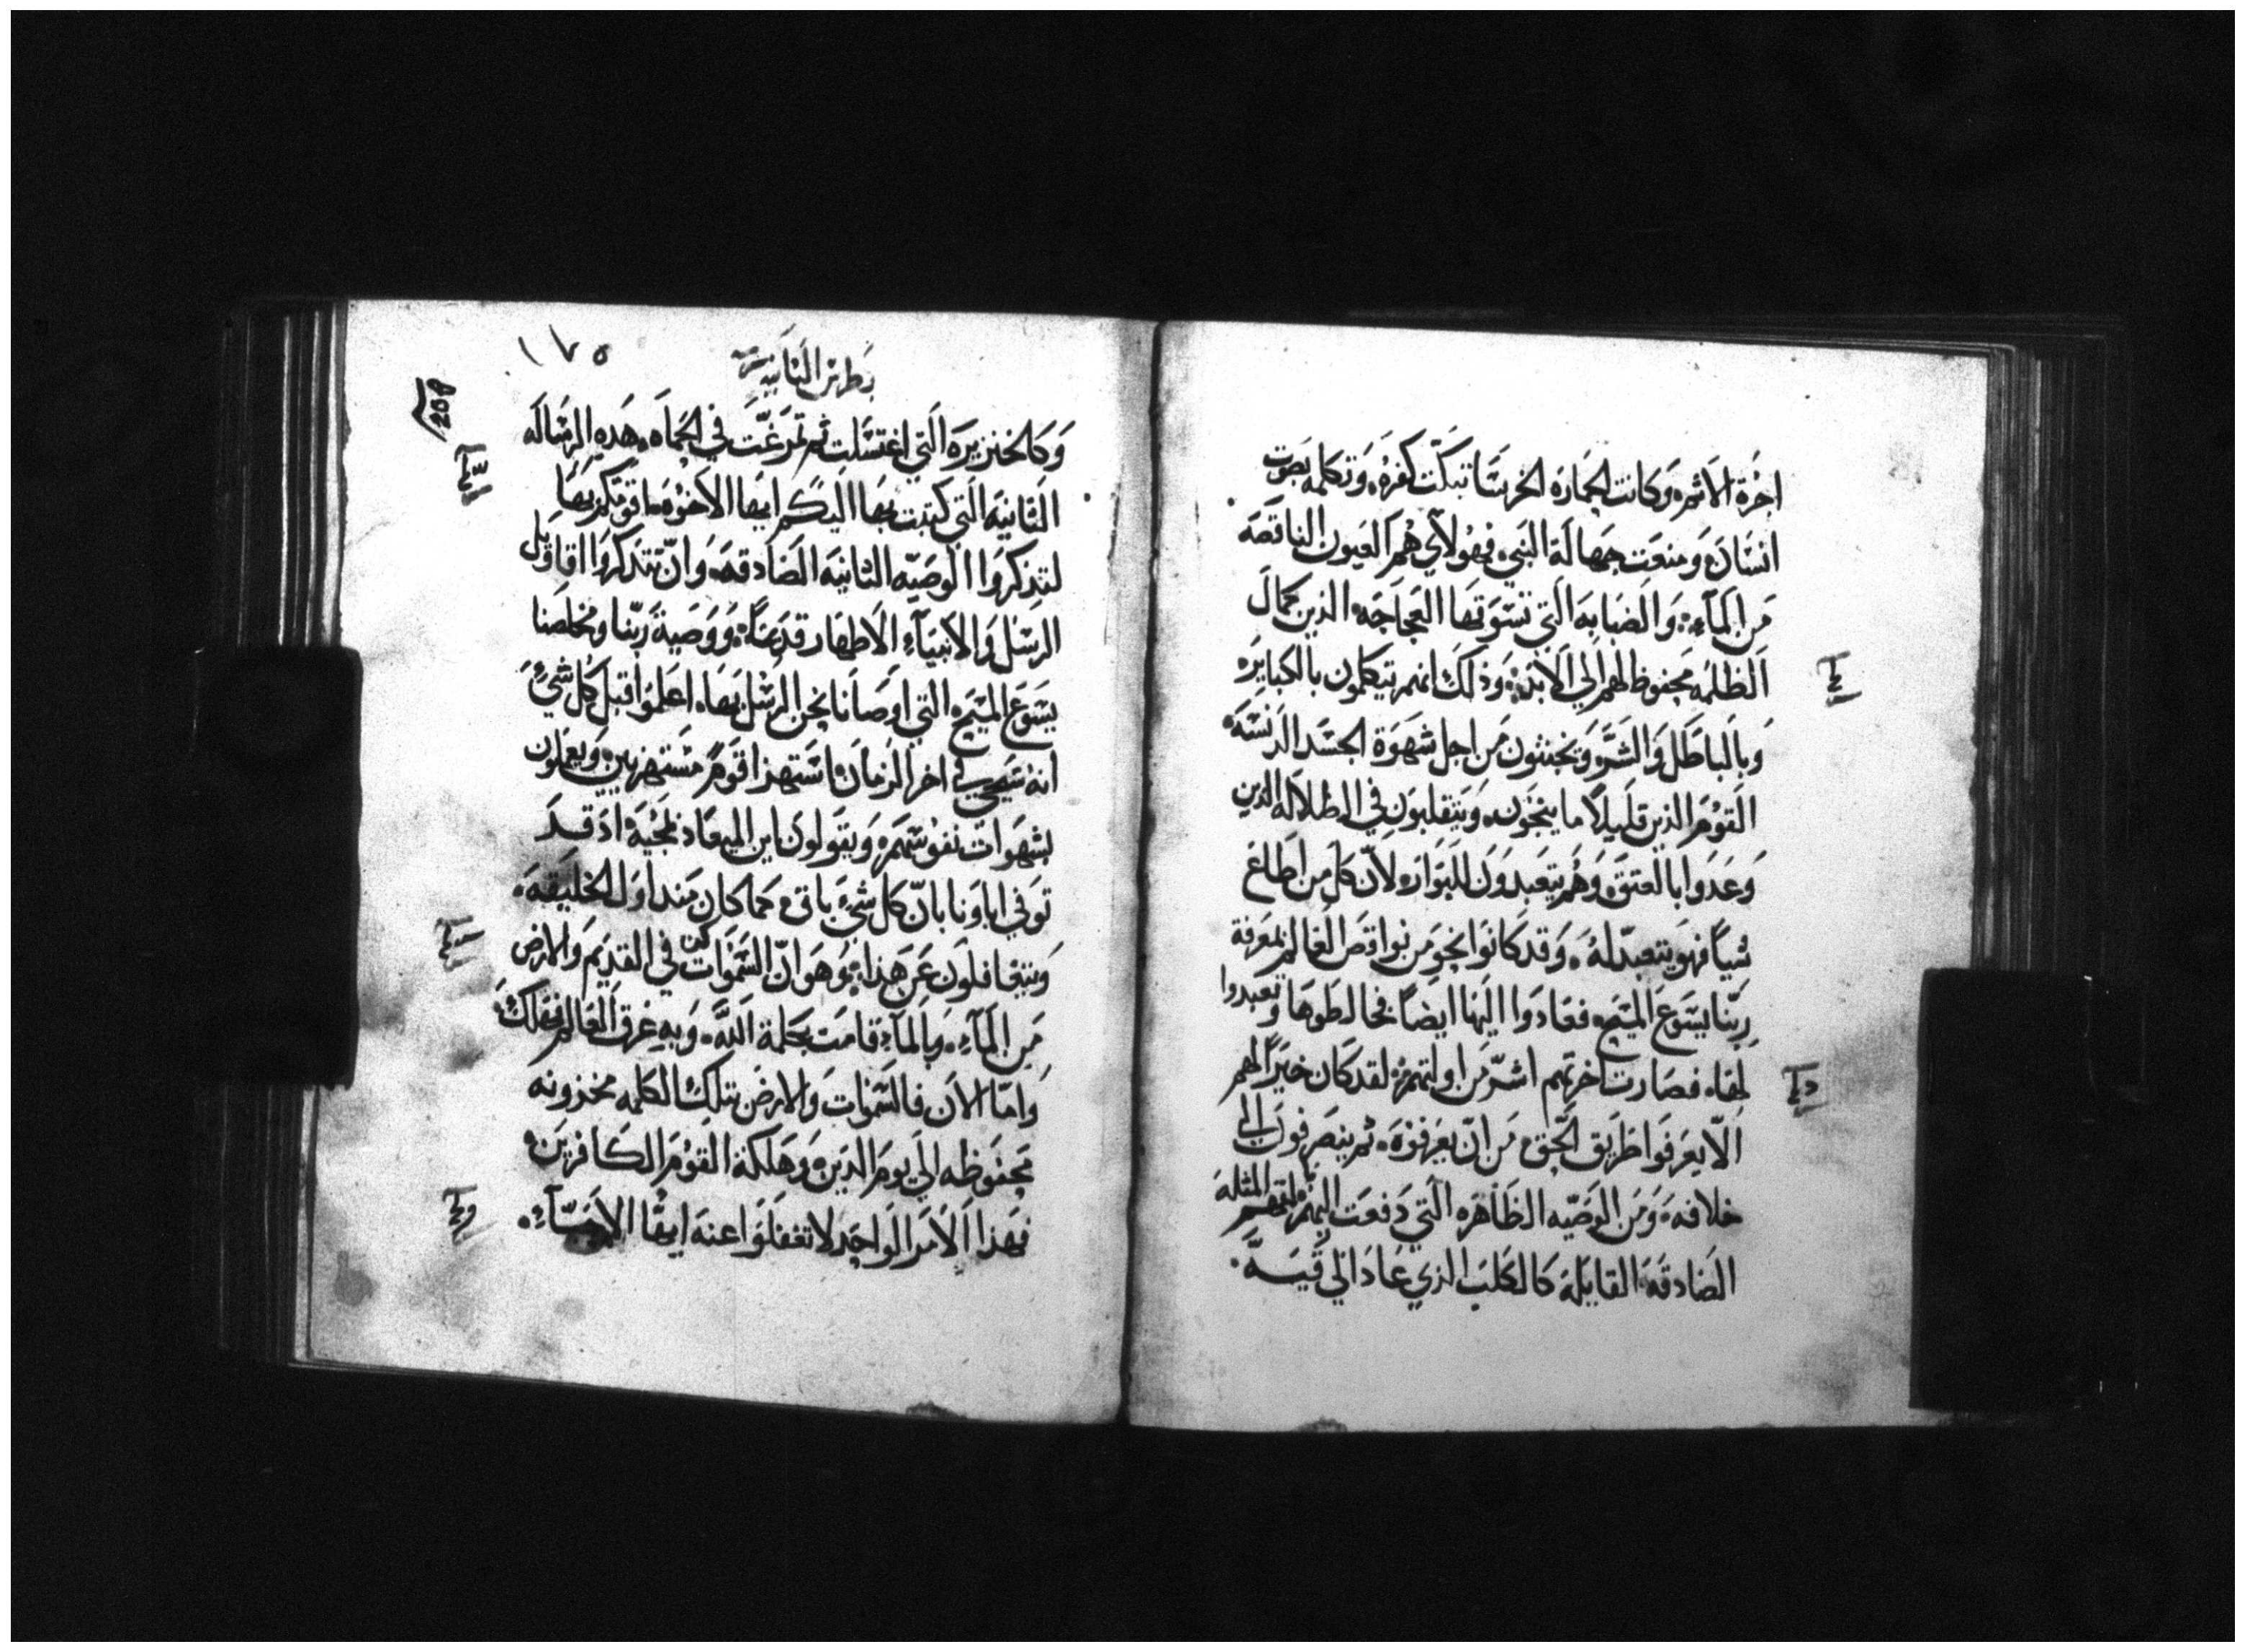 اجرة الاثم، وكانت الحمارة الخرسا تبكت كفره، وتكلمه بصوت
انسان، ومنعت جهالة النبي، فهولاي هم العيون الناقصه
من المآء، والضبابه التي تسوقها العجاجه الذين كمال
الظلمه محفوظ لهم الي الابد، وذلك انهم تيكلمون بالكبايره
وبالباطل والشره ويخنثون من اجل شهوة الجسد الدنسه
القوم الذين قليلاً ما ينجون، ويتقلبون في الطلاله الذين
وعدوا بالعتق، وهم يتعبدون للبوار، لانّ كل من اطاع
شياً فهو يتعبد له، وقد كانوا نجو من نواقص العالم بمعرفة
ربنا يسوع المسيح، فعادوا اليها ايضاً فخالطوها وتعبدوا
لها، فصارت اخرتهم اشرّ من اولتهم، لقد كان خيراً لهم
الّا يعرفوا طريق الحق، من انّ يعرفوه، ثم ينصرفون الي
خلافه، ومن الوصيه الظاهره التي دفعت اليهم، لقتهم المثله
الصادقه القايله كالكلب الذي عاد الي قيه،
١٧٥
بطرس الثانيه
258
وكالخنزيره التي اغتسلت ثم تمرغت في الحماه، هذه الرساله
الثانيه التي كتبت بها اليكم ايها الاخوه، اقومكم بها
لتذكروا الوصيه الثانيه الصادقه، وانّ تتذكروا اقاويل
الرسل والانبيآء الاطهار قديماً، ووصية ربنا ومخلصنا
يسوع المسيح، التي اوصانا نحن الرسل بها، اعلموا قبل كل شيء
انه سيجي في اخر الزمان، استهزا قوم مستهزيين، ويعملون
بشهوات نفوسهم، ويقولون اين الميعاد بمجيه، اذ قد
توفي اباونا بانّ كل شيء باقى، كما كان منذ اول الخليقه،
ويتغافلون عن هذا، وهو انّ السموات كن في القديم والارض
من المآء، وبالمآء قامت بكلمة الله، وبه غرق العالم فهلك
وامّا الان فالسموات والارض بتلك الكلمه مخزونه
محفوظه الي يوم الدين، وهلكة القوم الكافرين،
فهذا الامر الواحد لا تغفلوا عنه ايها الاحبّآء،